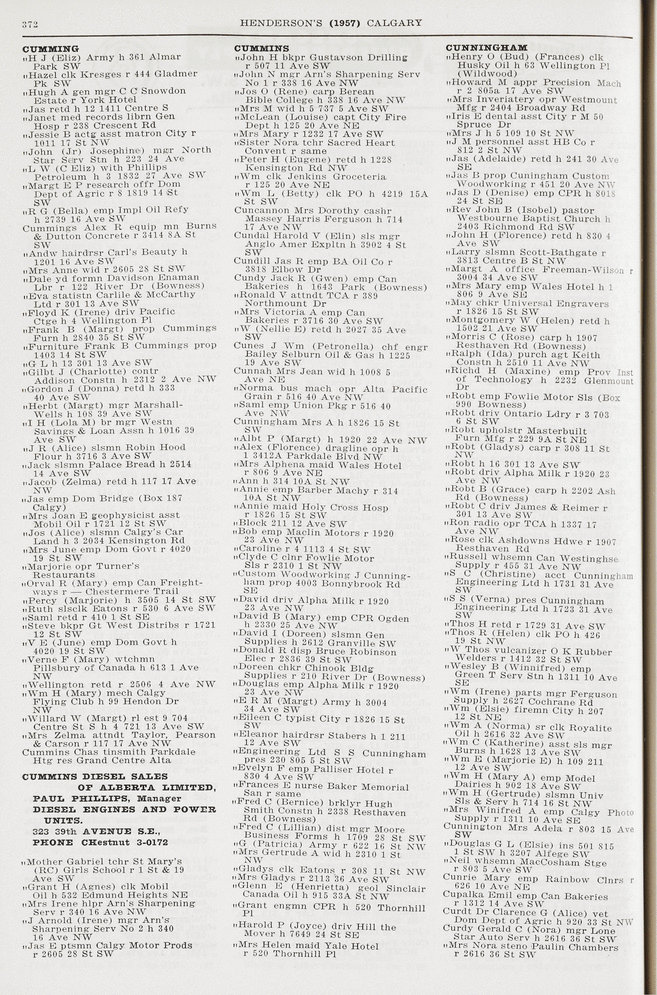 372
HENDERSON'S (1957) CALGARY
CUMMING
"H J (Eliz) Army h 361 Almar
Park SW
"Hazel clk Kresges r 444 Gladmer
Pk SW
"Hugh A gen mgr C C Snowdon
Estate r York Hotel
"Jas retd h 12 1411 Centre S
"Janet med records librn Gen
Hosp r 238 Crescent Rd
"Jessie B actg asst matron City r
1011 17 St NW
"John (Jr) Josephine) mgr North
Star Serv Stn h 223 24 Ave
"L W (C Eliz) with Phillips
Petroleum h 3 1832 27 Ave SW
"Margt E P research offr Dom
Dept of Agric r 8 1819 14 St
SW
"R G (Bella) emp Impl Oil Refy
h 2739 16 Ave SW
Cummings Alex R equip mn Burns
& Dutton Concrete r 3414 8A St
SW
"Andw hairdrsr Carl's Beauty h
1201 16 Ave SW
"Mrs Anne wid r 2605 28 St SW
"Dale yd formn Davidson Enaman
Lbr r 122 River Dr (Bowness)
"Eva statistn Carlile & McCarthy
Ltd r 301 13 Ave SW
"Floyd K (Irene) driv Pacific
Ctge h 4 Wellington Pl
"Frank B (Margt) prop Cummings
Furn h 2840 35 St SW
"Furniture Frank B Cummings prop
1403 14 St SW
"G L h 13 301 13 Ave SW
"Gilbt J (Charlotte) contr
Addison Constn h 2312 2 Ave NW
"Gordon J (Donna) retd h 333
40 Ave SW
"Herbt (Margt) mgr Marshall-
Wells h 108 39 Ave SW
"I H (Lola M) br mgr Westn
Savings & Loan Assn h 1016 39
Ave SW
"J R (Alice) slsmn Robin Hood
Flour h 3716 3 Ave SW
"Jack slsmn Palace Bread h 2514
14 Ave SW
"Jacob (Zelma) retd h 117 17 Ave
NW
"Jas emp Dom Bridge (Box 187
Calgy)
"Mrs Joan E geophysicist asst
Mobil Oil r 1721 12 St SW
"Jos (Alice) slsmn Calgy's Car
Land h 3 2034 Kensington Rd
"Mrs June emp Dom Govt r 4020
19 St SW
"Marjorie opr Turner's
Restaurants
"Orval R (Mary) emp Can Freight-
ways r — Chestermere Trail
"Percy (Marjorie) h 3505 14 St SW
"Ruth slsclk Eatons r 530 6 Ave SW
"Saml retd r 410 1 St SE
"Steve bkpr Gt West Distribs r 1721
12 St SW
"V E (June) emp Dom Govt h
4020 19 St SW
"Verne F (Mary) wtchmn
Pillsbury of Canada h 613 1 Ave
NW
"Wellington retd r 2506 4 Ave NW
"Wm H (Mary) mech Calgy
Flying Club h 99 Hendon Dr
NW
"Willard W (Margt) rl est 9 704
Centre St S h 4 721 13 Ave SW
"Mrs Zelma attndt Taylor, Pearson
& Carson r 117 17 Ave NW
Cummins Chas tinsmith Parkdale
Htg res Grand Centre Alta
CUMMINS DIESEL SALES
OF ALBERTA LIMITED,
PAUL PHILLIPS, Manager
DIESEL ENGINES AND POWER
UNITS.
323 39th AVENUE S.E.,
PHONE CHestnut 3-0172
"Mother Gabriel tchr St Mary's
(RC) Girls School r 1 St & 19
Ave SW
"Grant H (Agnes) clk Mobil
Oil h 532 Edmund Heights NE
"Mrs Irene hlpr Arn's Sharpening
Serv r 340 16 Ave NW
"J Arnold (Irene) mgr Arn's
Sharpening Serv No 2 h 340
16 Ave NW
"Jas E ptsmn Calgy Motor Prods
r 2605 28 St SW
CUMMINS
"John H bkpr Gustavson Drilling
r 507 11 Ave SW
"John N mgr Arn's Sharpening Serv
No 1 r 338 16 Ave NW
"Jos O (Rene) carp Berean
Bible College h 338 16 Ave NW
"Mrs M wid h 5 737 5 Ave SW
"McLean (Louise) capt City Fire
Dept h 125 20 Ave NE
"Mrs Mary r 1232 17 Ave SW
"Sister Nora tchr Sacred Heart
Convent r same
"Peter H (Eugene) retd h 1228
Kensington Rd NW
"Wm clk Jenkins Groceteria
r 125 20 Ave NE
"Wm L (Betty) clk PO h 4219 15A
St SW
Cuncannon Mrs Dorothy cashr
Massey Harris Ferguson h 714
17 Ave NW
Cundal Harold V (Elin) sls mgr
Anglo Amer Expltn h 3902 4 St
SW
Cundill Jas R emp BA Oil Co r
3818 Elbow Dr
Cundy Jack R (Gwen) emp Can
Bakeries h 1643 Park (Bowness)
"Ronald V attndt TCA r 389
Northmount Dr
"Mrs Victoria A emp Can
Bakeries r 3716 30 Ave SW
"W (Nellie E) retd h 2027 35 Ave
SW
Cunes J Wm (Petronella) chf engr
Bailey Selburn Oil & Gas h 1225
19 Ave SW
Cunnah Mrs Jean wid h 1008 5
Ave NE
"Norma bus mach opr Alta Pacific
Grain r 516 40 Ave NW
"Saml emp Union Pkg r 516 40
Ave NW
Cunningham Mrs A h 1826 15 St
SW
"Albt P (Margt) h 1920 22 Ave NW
"Alex (Florence) dragline opr h
1 3412A Parkdale Blvd NW
"Mrs Alphena maid Wales Hotel
r 806 9 Ave NE
"Ann h 314 10A St NW
"Annie emp Barber Machy r 314
10A St NW
"Annie maid Holy Cross Hosp
r 1826 15 St SW
"Block 211 12 Ave SW
"Bob emp Maclin Motors r 1920
23 Ave NW
"Caroline r 4 1113 4 St SW
"Clyde C clnr Fowlie Motor
Sls r 2310 1 St NW
"Custom Woodworking J Cunning-
ham prop 4003 Bonnybrook Rd
SE
"David driv Alpha Milk r 1920
23 Ave NW
"David B (Mary) emp CPR Ogden
h 2330 25 Ave NW
"David I (Doreen) slsmn Gen
Supplies h 2612 Granville SW
"Donald R disp Bruce Robinson
Elec r 2836 29 St SW
"Doreen chkr Chinook Bldg
Supplies r 210 River Dr (Bowness)
"Douglas emp Alpha Milk r 1920
23 Ave NW
"E R M (Margt) Army h 3004
34 Ave SW
"Eileen C typist City r 1826 15 St
SW
"Eleanor hairdrsr Stabers h 1 211
12 Ave SW
"Engineering Ltd S S Cunningham
pres 230 805 5 St SW
"Evelyn F emp Palliser Hotel r
830 4 Ave SW
"Frances E nurse Baker Memorial
San r same
"Fred C (Bernice) brklyr Hugh
Smith Constn h 2338 Resthaven
Rd (Bowness)
"Fred C (Lillian) dist mgr Moore
Business Forms h 1709 28 St SW
"G (Patricia) Army r 622 16 St NW
"Mrs Gertrude A wid h 2310 1 St
NW
"Gladys clk Eatons r 308 11 St NW
"Mrs Gladys r 2113 36 Ave SW
"Glenn E (Henrietta) geol Sinclair
Canada Oil h 915 33A St NW
"Grant engmn CPR h 520 Thornhill
Pl
"Harold P (Joyce) driv Hill the
Mover h 7649 24 St SE
"Mrs Helen maid Yale Hotel
r 520 Thornhill Pl
CUNNINGHAM
"Henry O (Bud) (Frances) clk
Husky Oil h 63 Wellington Pl
(Wildwood)
"Howard M appr Precision Mach
r 2 805a 17 Ave SW
"Mrs Inveriatery opr Westmount
Mfg r 2404 Broadway Rd
"Iris E dental asst City r M 50
Spruce Dr
"Mrs J h 5 109 10 St NW
"J M personnel asst HB Co r
812 2 St NW
"Jas (Adelaide) retd h 241 30 Ave
SE
"Jas B prop Cuningham Custom
Woodworking r 451 20 Ave NW
"Jas D (Denise) emp CPR h 8018
24 St SE
"Rev John B (Isobel) pastor
Westbourne Baptist Church h
2403 Richmond Rd SW
"John H (Florence) retd h 830 4
Ave SW
"Larry slsmn Scott-Bathgate r
3813 Centre B St NW
"Margt A office Freeman-Wilson r
3004 34 Ave SW
"Mrs Mary emp Wales Hotel h 1
806 9 Ave SE
"May chkr Universal Engravers
r 1826 15 St SW
"Montgomery W (Helen) retd h
1502 21 Ave SW
"Morris C (Rose) carp h 1907
Resthaven Rd (Bowness)
"Ralph (Ida) purch agt Keith
Constn h 2510 11 Ave NW
"Richd H (Maxine) emp Prov Inst
of Technology h 2232 Glenmount
Dr
"Robt emp Fowlie Motor Sls (Box
990 Bowness)
"Robt driv Ontario Ldry r 3 703
6 St SW
"Robt upholstr Masterbuilt
Furn Mfg r 229 9A St NE
"Robt (Gladys) carp r 308 11 St
NW
"Robt h 16 301 13 Ave SW
"Robt driv Alpha Milk r 1920 23
Ave NW
"Robt B (Grace) carp h 2202 Ash
Rd (Bowness)
"Robt C driv James & Reimer r
301 13 Ave SW
"Ron radio opr TCA h 1337 17
Ave NW
"Rose clk Ashdowns Hdwe r 1907
Resthaven Rd
"Russell whsemn Can Westinghse
Supply r 455 31 Ave NW
"S C (Christine) acct Cunningham
Engineering Ltd h 1731 31 Ave
SW
"S S (Verna) pres Cunningham
Engineering Ltd h 1723 31 Ave
SW
"Thos H retd r 1729 31 Ave SW
"Thos R (Helen) clk PO h 426
19 St NW
"W Thos vulcanizer O K Rubber
Welders r 1412 32 St SW
"Wesley B (Winnifred) emp
Green T Serv Stn h 1311 10 Ave
SE
"Wm (Irene) parts mgr Ferguson
Supply h 2627 Cochrane Rd
"Wm (Elsie) firemn City h 207
12 St NE
"Wm A (Norma) sr clk Royalite
Oil h 2616 32 Ave SW
"Wm C (Katherine) asst sls mgr
Burns h 1628 13 Ave SW
"Wm E (Marjorie E) h 109 211
12 Ave SW
"Wm H (Mary A) emp Model
Dairies h 902 18 Ave SW
"Wm H (Gertrude) slsmn Univ
Sls & Serv h 714 16 St NW
"Mrs Winifred A emp Calgy Photo
Supply r 1311 10 Ave SE
Cunnington Mrs Adela r 803 15 Ave
SW
"Douglas G L (Elsie) ins 501 815
1 St SW h 3207 Alfege SW
"Neil whsemn MacCosham Stge
r 803 5 Ave SW
Cunrie Mary emp Rainbow Clnrs r
626 10 Ave NE
Cupalka Emil emp Can Bakeries
r 1312 14 Ave SW
Curdt Dr Clarence G (Alice) vet
Dom Dept of Agric h 920 33 St NW
Curdy Gerald C (Nora) mgr Lone
Star Auto Serv h 2616 36 St SW
"Mrs Nora steno Paulin Chambers
r 2616 36 St SW